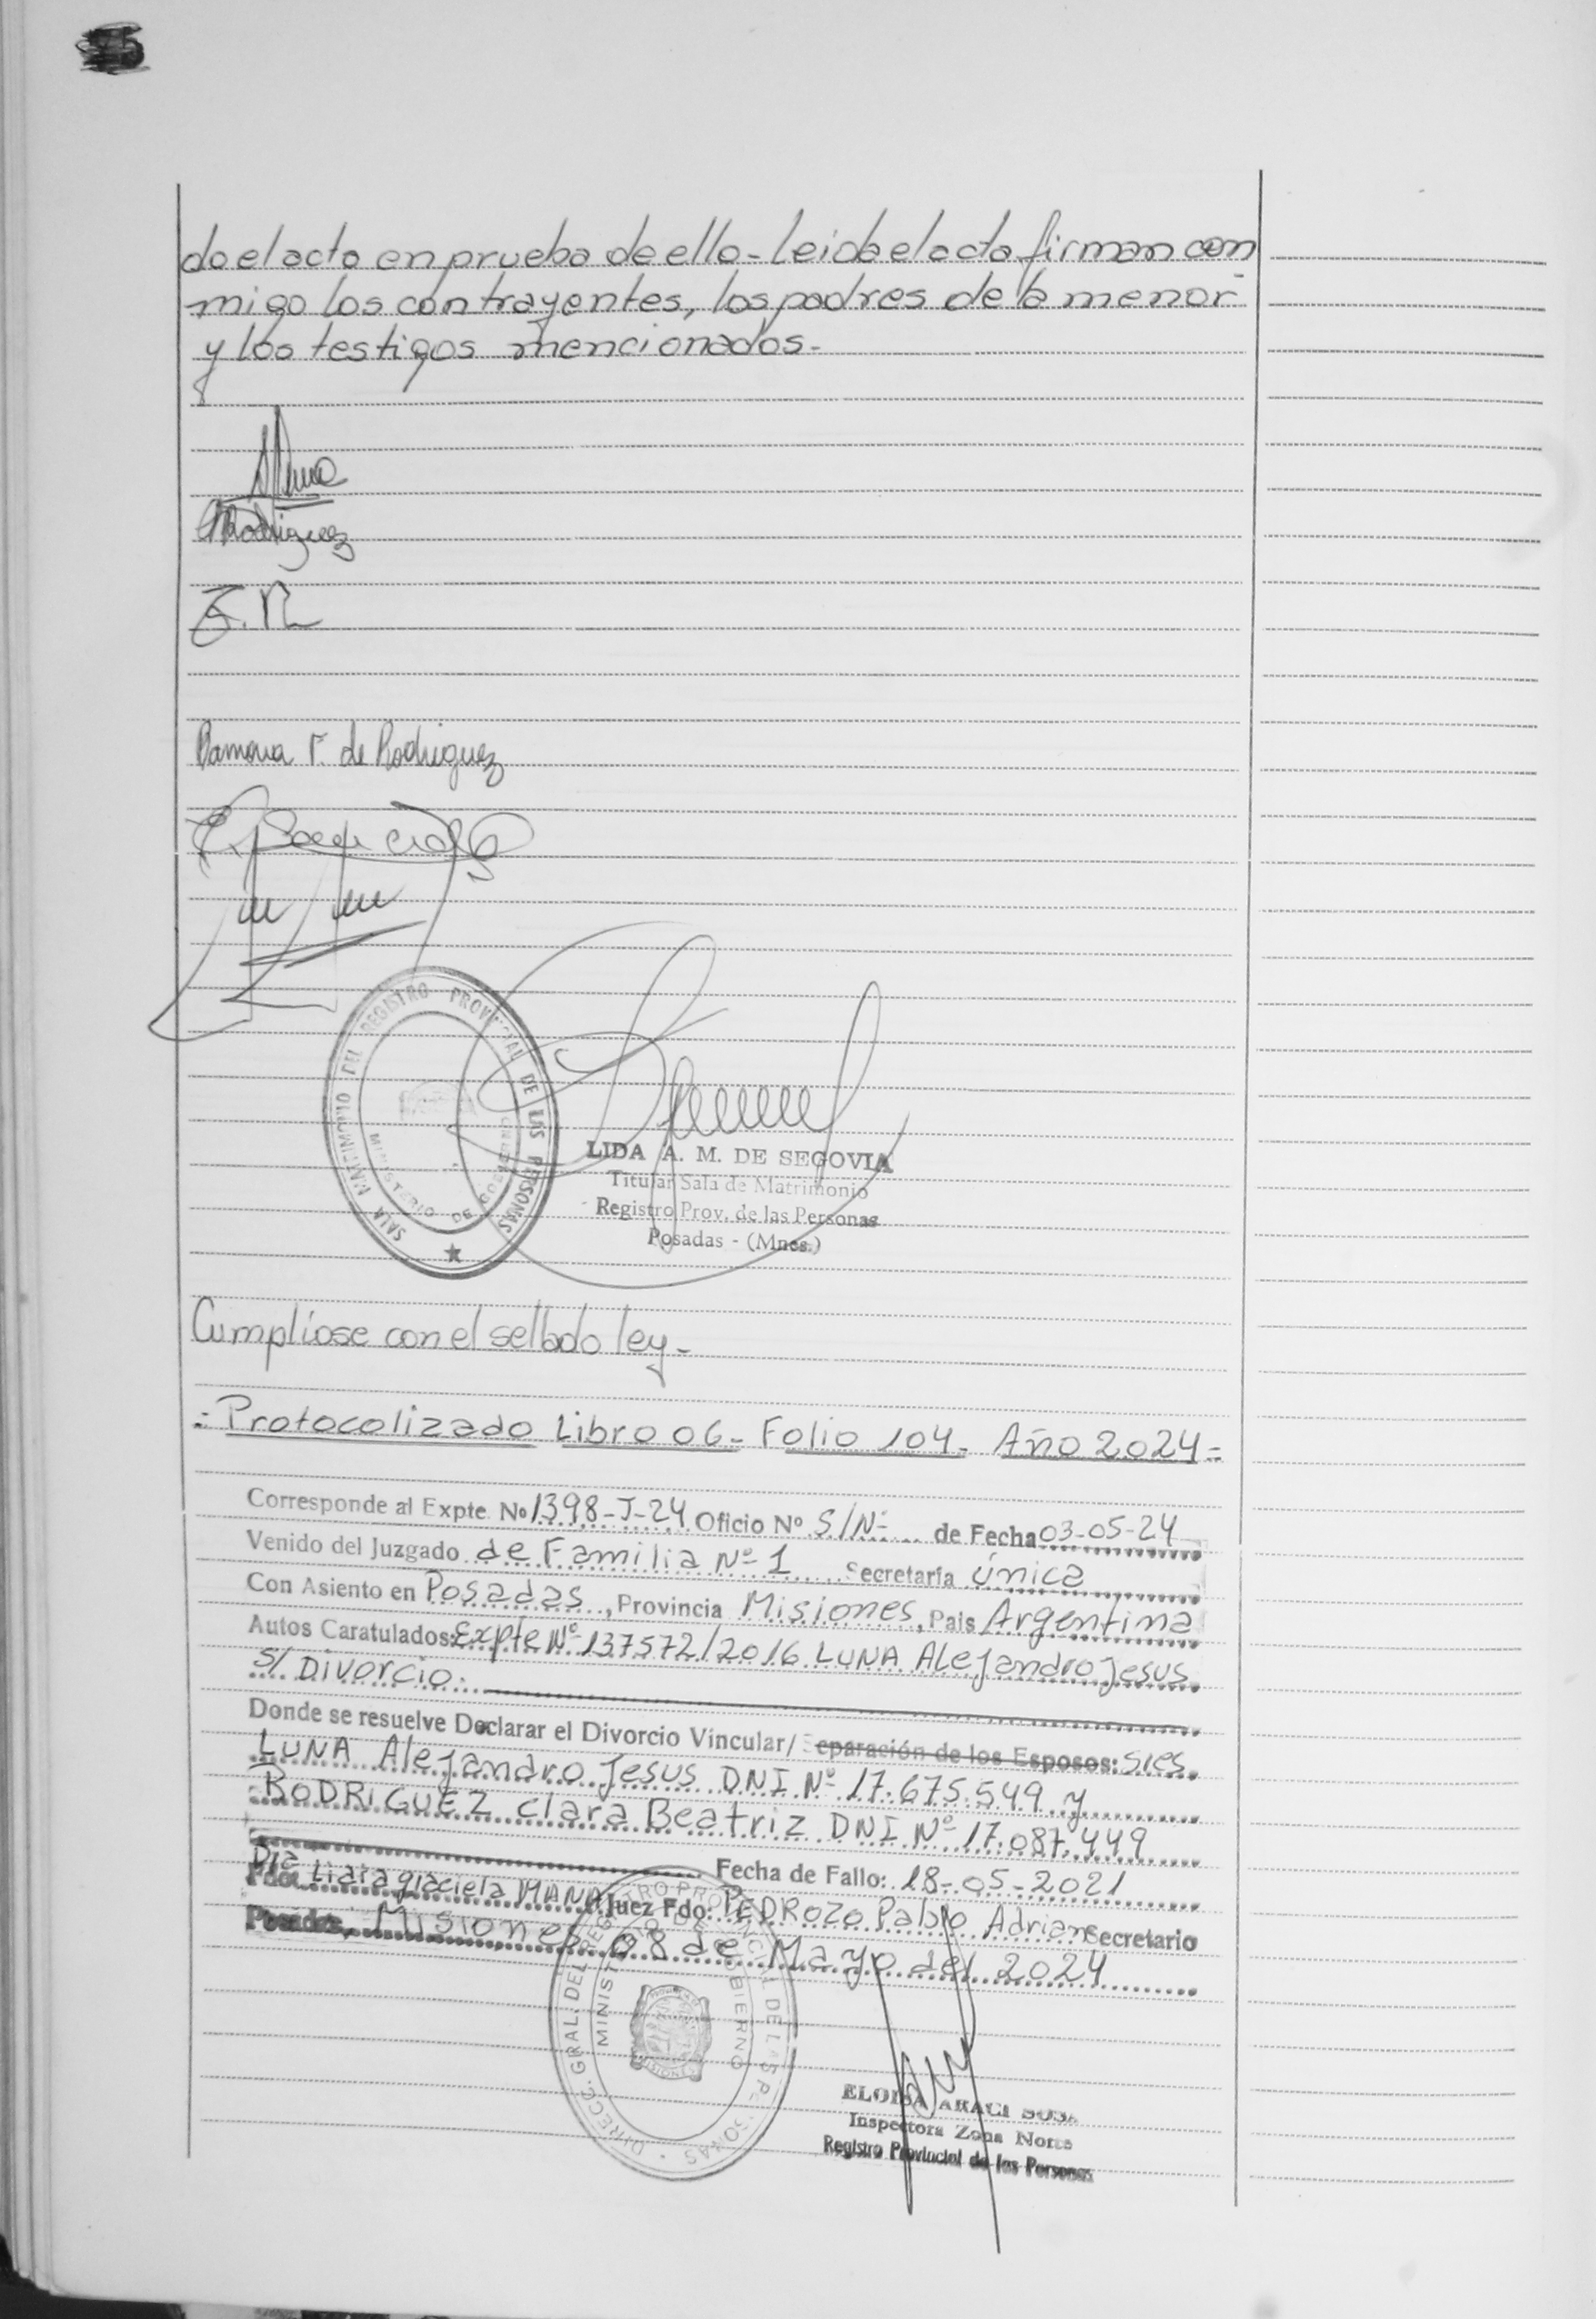 do el acto en prueba de ello - Leida el acta firman con
migo los contrayentes, los padres de la menor
y los testigos mencionados -
Rodriguez
Ramona F. de Rodriguez
SALA MATRIMONIO DEL REGISTRO PROVINCIAL DE LAS PERSONAS
MINISTERIO DE GOBIERNO
LIDA A. M. DE SEGOVIA
Titular Sala de Matrimonio
Registro Prov. de las Personas
Posadas - (Mnes.)
Cumpliose con el sellado ley -
=Protocolizado Libro 06- Folio 104- Año 2024=
Corresponde al Expte. Nº 1398-J-24 Oficio Nº S/Nº de Fecha 03-05-24
Venido del Juzgado de Familia Nº 1 Secretaría única
Con Asiento en Posadas, Provincia Misiones, Pais Argentina
Autos Caratulados: Expte Nº 137572/2016 LUNA Alejandro Jesus
S/ Divorcio.
Donde se resuelve Declarar el Divorcio Vincular/ Separación de los Esposos: Sres.
LUNA Alejandro Jesus DNI Nº 17.675.549 y
RODRIGUEZ Clara Beatriz DNI Nº 17.087.449
Fecha de Fallo: 18-05-2021
Dra Liara graciela MANA Juez Fdo: PEDROZO Pablo Adrian Secretario
Posadas, Misiones 08 de Mayo del 2024
DIRECC. GRAL. DEL REGISTRO PROVINCIAL DE LAS PERSONAS
MINISTERIO DE GOBIERNO
ELOISA ARACI SOSA
Inspectora Zona Norte
Registro Provincial de las Personas